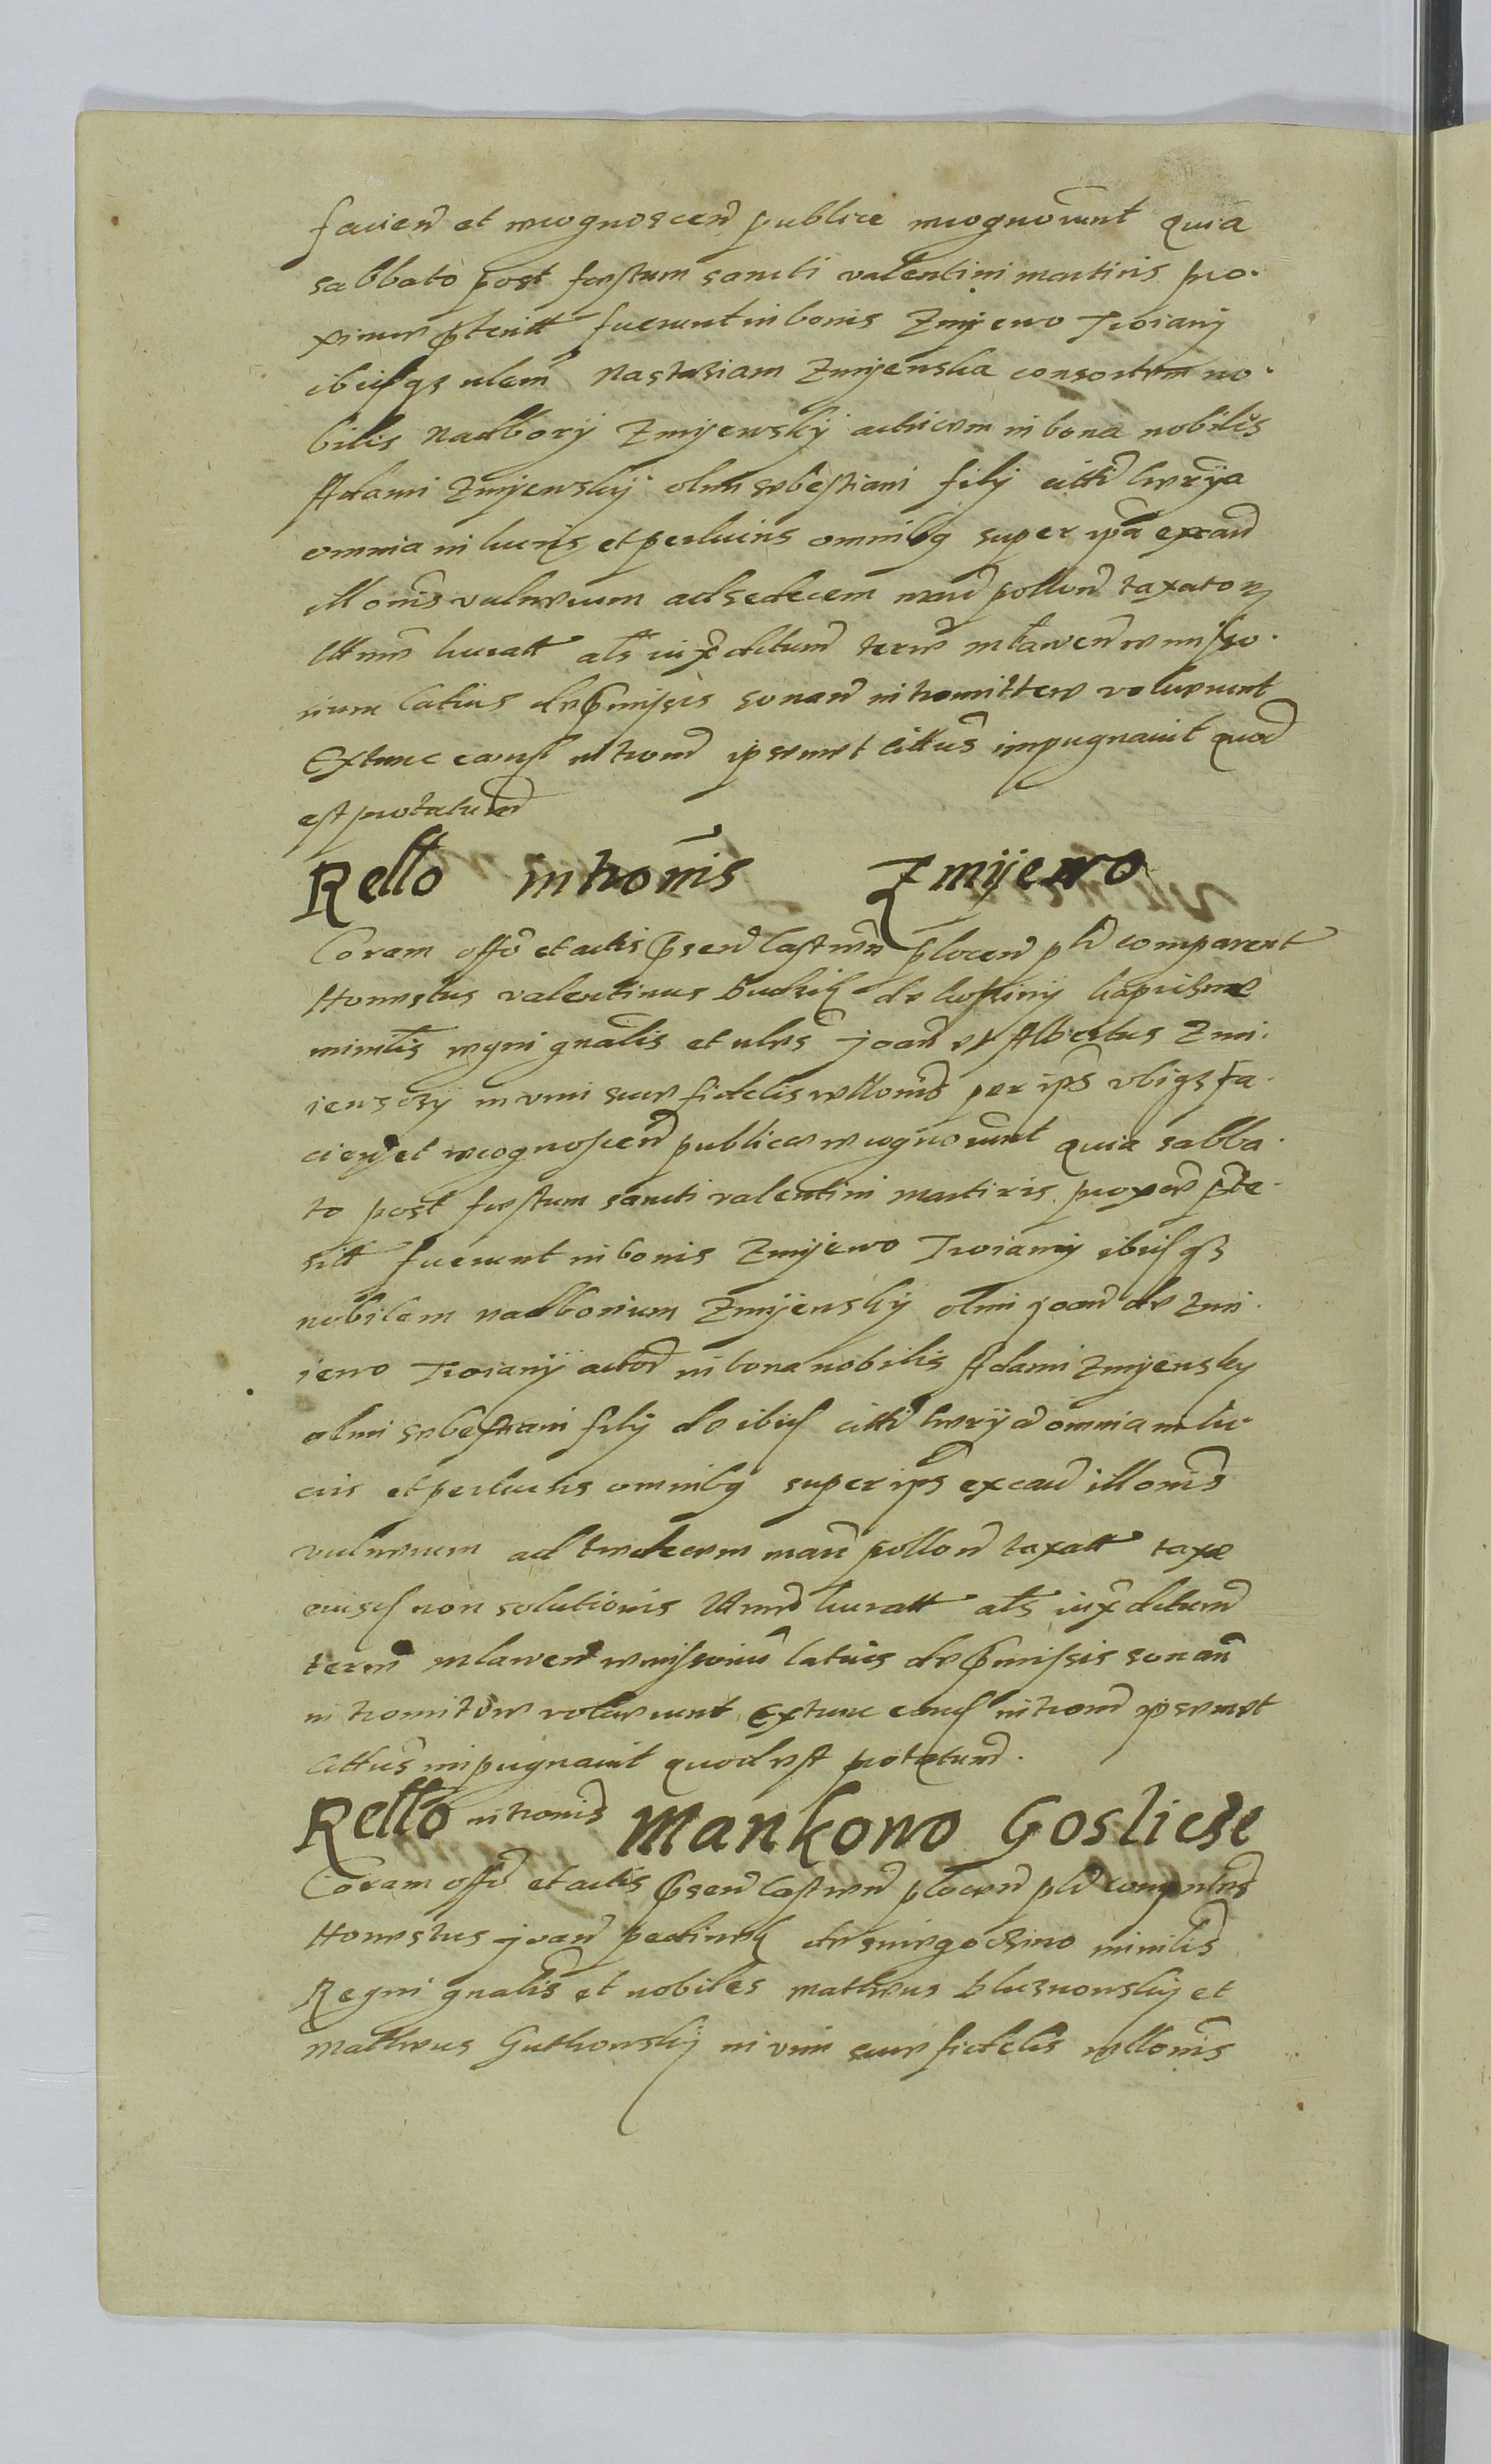 facien et recognoscen publice recognorunt quia
sabbato post festum sancti valentini martiris pro-
xime pteritt fuerunt in bonis Zmijewo Troiany
ibidqs nlem Nastaziam Zmijewska consortem no-
bilis Nadbory Zmijewskij actricem in bona nobilis
Adami Zmijewskij olim sebestiani filij citti hærya
omnia in lucris et perlucris omnibq super ipa ex cau
illonis vulnerum ad sedecem mar pollon taxator
lttme lucratt als iux dctum term mlawen remisso-
rium latius de pmissis sonan intromittere voluerunt
Extunc eand introm ipsemet cittus impugnauit quod
est protatum
Rello intronis Zmijewo
Coram offo et actis psen castren plocen plr comparent
Honestus valentinus budzik de
minrlis regni gnalis et nles joan et Albertus Zmi-
iewsczy in vim sue fidelis rellonis per ips vbiqs fa-
cien et recognoscen publice recognorunt quia sabba-
to post festum sancti valentini martiris proxe pte-
ritt fuerunt in bonis Zmijewo Troiany ibidqs
nobilem nadborium Zmijewskij olim joan de Zmi-
iewo Troianij actor in bona nobilis Adami Zmijewsky
olim sebestiani filij de ibid citti hærya omnia in lu-
cris et perlucris omnibq super ips ex cau illonis
vulnerum ad tredecem mar pollon taxatt taxe
eiusd non solutionis lttme lucratt als iux dctum
term mlawen remissoriu latius de pmissis sonan
intromittere voluerunt Extunc eand introm ipsemet
cittus impugnauit quod est protatum.
Rello intronis Mankowo Goslicze
Coram offo et actis psen castren plocen plr comparens
Honestus joan de sniegoczino minrlis
Regni gnalis et nobiles matheus bluznowskij et
matheus Guthowskij in vim sue fidelis rellonis